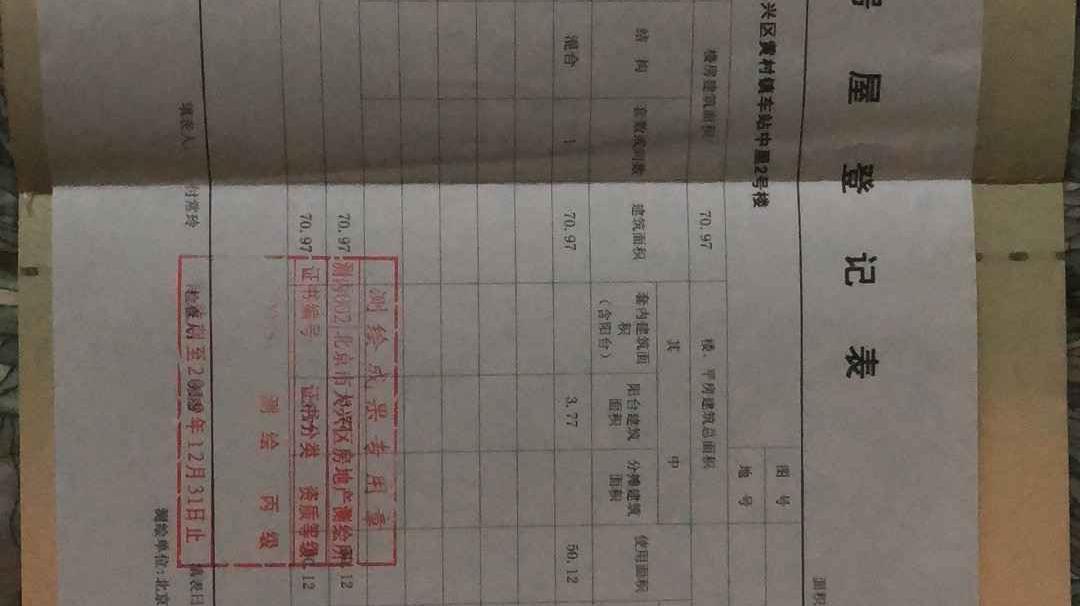 屋登记表
面积
兴区黄村镇车站中里2号楼
图号
地号
楼房建筑面积 70.97 楼、平房建筑总面积
其 中
结构 套数或间数 建筑面积 套内建筑面积（含阳台） 阳台建筑面积 分摊建筑面积 使用面积
混合 1 70.97 3.77 50.12
70.97 12
70.97 12
测绘成果专用章
北京市大兴区房地产测绘所
证书编号 证书分类 资质等级
测绘丙级
年12月31日止
填表人 付常玲 填表日
测绘单位：北京